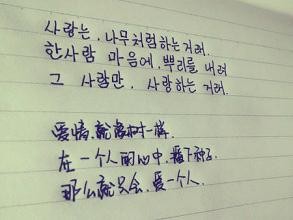 사랑는, 나무처럼하는거래.
한사람 마음에, 뿌리를 내려
그 사람만, 사랑하는 거래.
爱情, 就像树一样,
在一个人的心中, 播下种子.
那么就只会, 爱一个人.